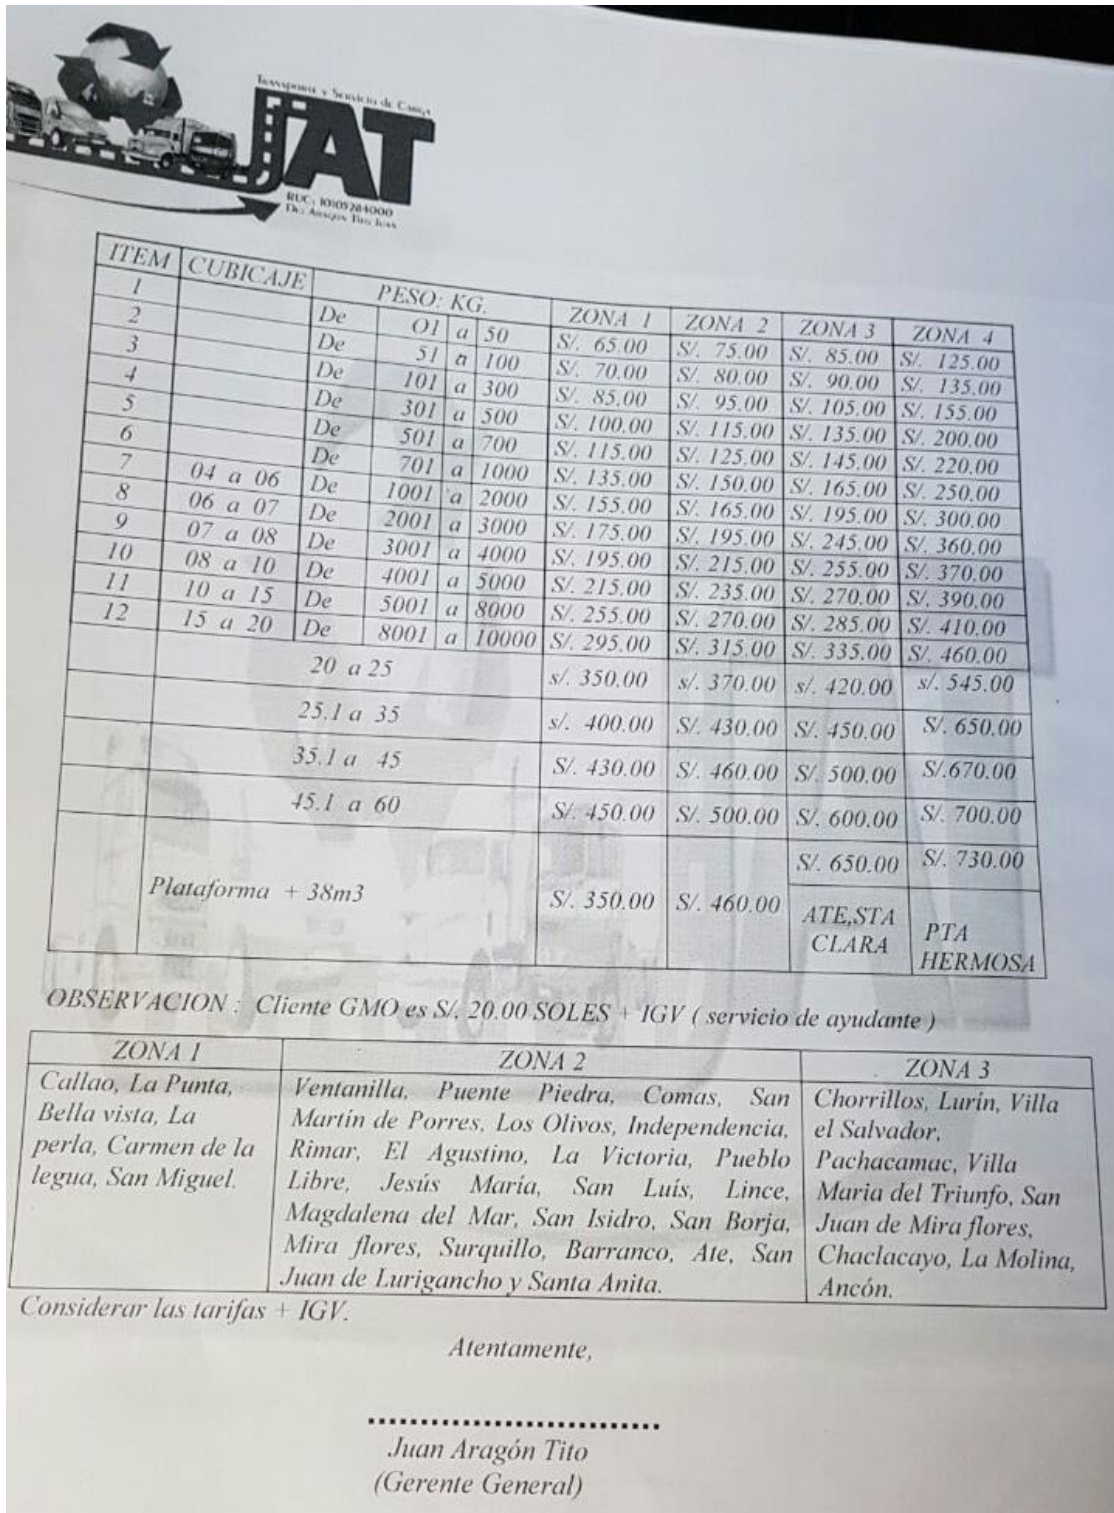 Transporte y Servicio de Carga
JAT
RUC: 10105284000
De: Aragon Tito Juan
ITEM CUBICAJE PESO: KG. ZONA 1 ZONA 2 ZONA 3 ZONA 4
1 De O1 a 50 S/. 65.00 S/. 75.00 S/. 85.00 S/. 125.00
2 De 51 a 100 S/. 70.00 S/. 80.00 S/. 90.00 S/. 135.00
3 De 101 a 300 S/. 85.00 S/. 95.00 S/. 105.00 S/. 155.00
4 De 301 a 500 S/. 100.00 S/. 115.00 S/. 135.00 S/. 200.00
5 De 501 a 700 S/. 115.00 S/. 125.00 S/. 145.00 S/. 220.00
6 De 701 a 1000 S/. 135.00 S/. 150.00 S/. 165.00 S/. 250.00
7 04 a 06 De 1001 a 2000 S/. 155.00 S/. 165.00 S/. 195.00 S/. 300.00
8 06 a 07 De 2001 a 3000 S/. 175.00 S/. 195.00 S/. 245.00 S/. 360.00
9 07 a 08 De 3001 a 4000 S/. 195.00 S/. 215.00 S/. 255.00 S/. 370.00
10 08 a 10 De 4001 a 5000 S/. 215.00 S/. 235.00 S/. 270.00 S/. 390.00
11 10 a 15 De 5001 a 8000 S/. 255.00 S/. 270.00 S/. 285.00 S/. 410.00
12 15 a 20 De 8001 a 10000 S/. 295.00 S/. 315.00 S/. 335.00 S/. 460.00
20 a 25 s/. 350.00 s/. 370.00 s/. 420.00 s/. 545.00
25.1 a 35 s/. 400.00 S/. 430.00 S/. 450.00 S/. 650.00
35.1 a 45 S/. 430.00 S/. 460.00 S/. 500.00 S/.670.00
45.1 a 60 S/. 450.00 S/. 500.00 S/. 600.00 S/. 700.00
S/. 650.00 S/. 730.00
Plataforma + 38m3 S/. 350.00 S/. 460.00
ATE,STA
CLARA
PTA
HERMOSA
OBSERVACION : Cliente GMO es S/. 20.00 SOLES + IGV ( servicio de ayudante )
ZONA 1
Callao, La Punta,
Bella vista, La
perla, Carmen de la
legua, San Miguel.
ZONA 2
Ventanilla, Puente Piedra, Comas, San
Martín de Porres, Los Olivos, Independencia,
Rimar, El Agustino, La Victoria, Pueblo
Libre, Jesús María, San Luís, Lince,
Magdalena del Mar, San Isidro, San Borja,
Mira flores, Surquillo, Barranco, Ate, San
Juan de Lurigancho y Santa Anita.
ZONA 3
Chorrillos, Lurín, Villa
el Salvador,
Pachacamac, Villa
Maria del Triunfo, San
Juan de Mira flores,
Chaclacayo, La Molina,
Ancón.
Considerar las tarifas + IGV.
Atentamente,
Juan Aragón Tito
(Gerente General)